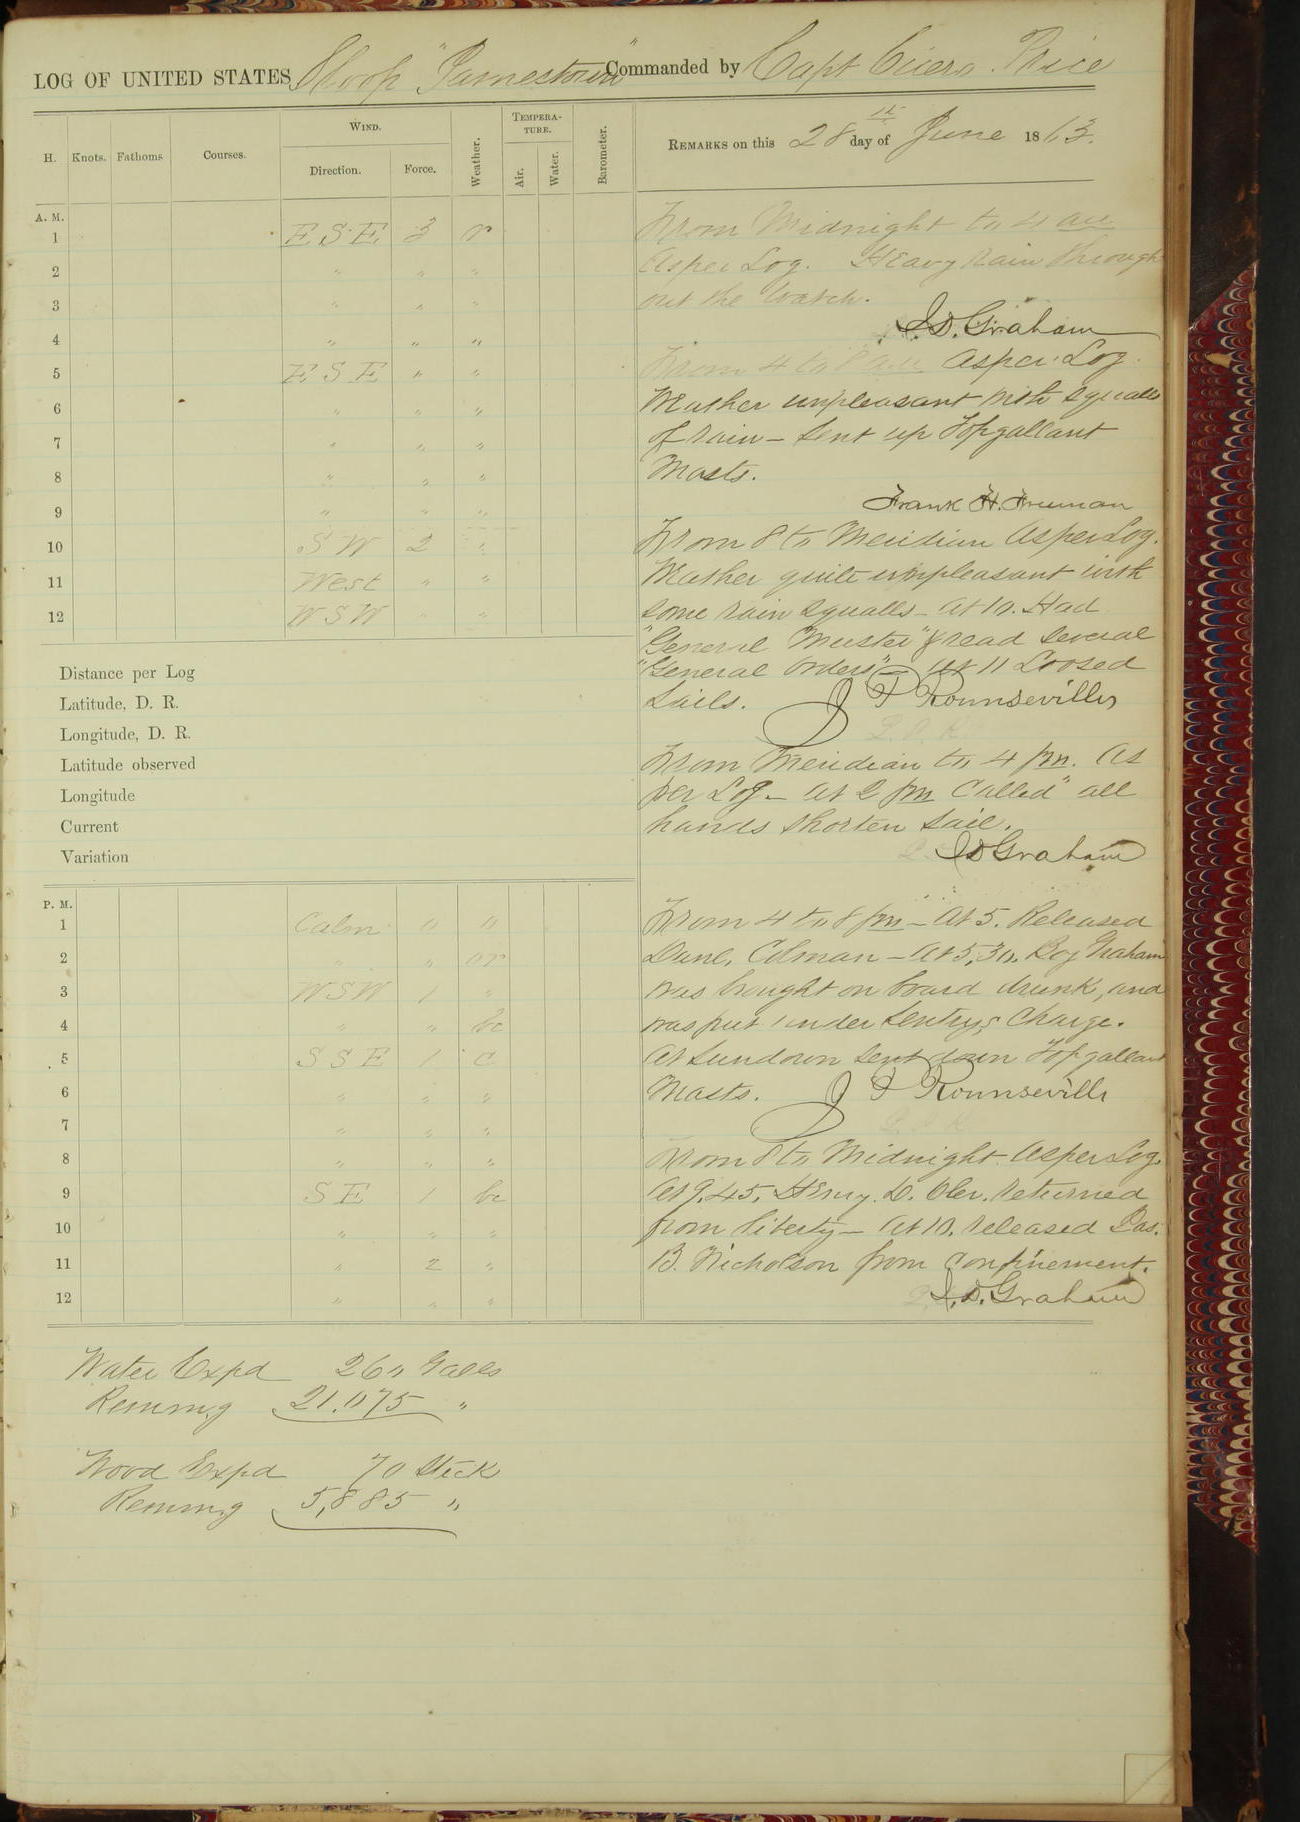 LOG OF UNITED STATES Sloop "Jamestown" Commanded by Capt Cicero Price
H. Knots. Fathoms Courses. Wind. Direction. Force. Weather. Tempera-ture. Air. Water. Barometer. Remarks on this 28th day of June 1863.
A. M.
1 E S E 3 r
2 " " "
3 " " "
4 " " "
5 E S E " "
6 " " "
7 " " "
8 " " "
9 " " "
10 S W 2 "
11 West " "
12 W S W " "
Distance per Log
Latitude, D. R.
Longitude, D. R.
Latitude observed
Longitude
Current
Variation
P. M.
1 Calm 0 "
2 " " or
3 W S W 1 "
4 " " bc
5 S S E 1 c
6 " " "
7 " " "
8 " " "
9 S E 1 bc
10 " " "
11 " 2 "
12 " " "
From Midnight to 4 am
As per Log. Heavy rain through
out the watch.
J. D. Graham
From 4 to 8 am As per Log
Weather unpleasant with squalls
of rain – Sent up Topgallant
Masts.
Frank H. Freeman
From 8 to Meridian As per Log.
Weather quite unpleasant with
some rain squalls – At 10. Had
"General Muster" & read several
"General Orders" – At 11 Loosed
Sails. J P Rounseville
From Meridian to 4 pm. As
per Log – At 2 pm Called "all
hands shorten sail.
J D Graham
From 4 to 8 pm – At 5. Released
Danl. Colman – At 5,30. Boy Graham
was brought on board drunk, and
was put under Sentrys Charge.
At Sundown sent down Topgallant
Masts. J P Rounseville
From 8 to Midnight As per Log.
At 9.45, Henry. D. Ober. returned
from liberty – At 10. released Jas.
B. Nicholson from confinement.
J. D. Graham
Water Expd 260 Galls
Remng 21.075 "
Wood Expd 70 Stick
Remng 5,885 "